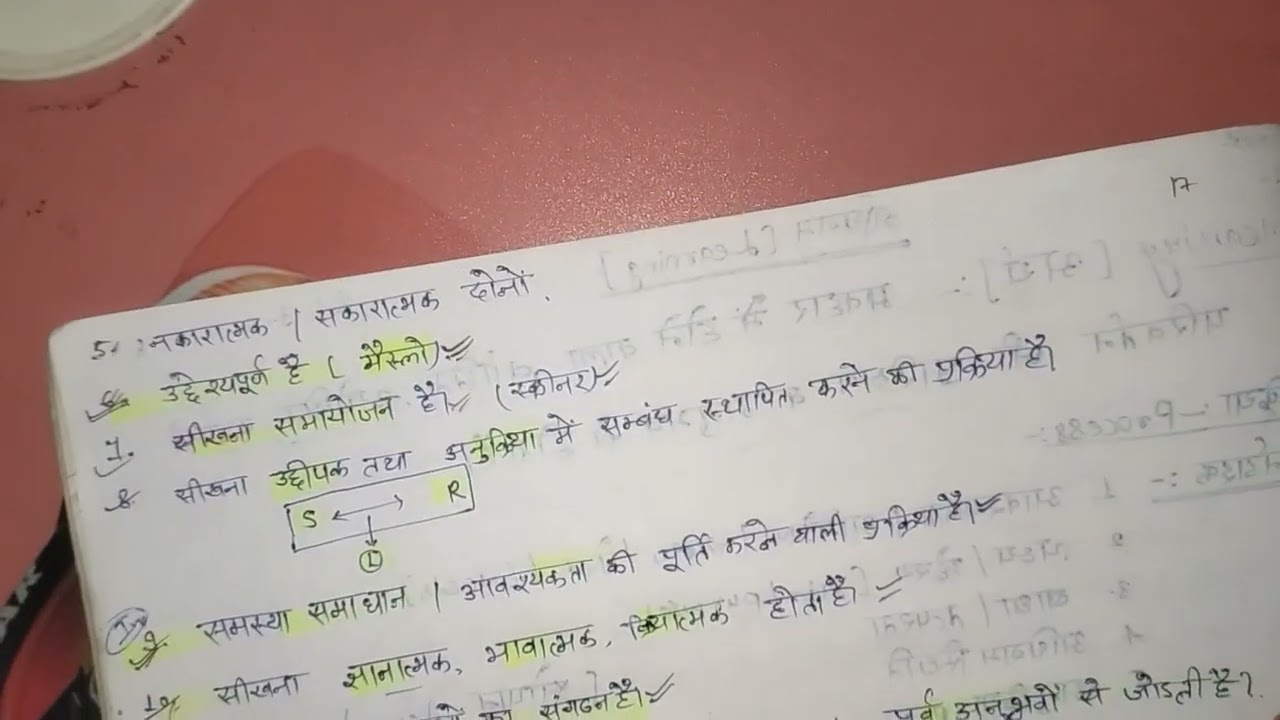 17
5. नकारात्मक / सकारात्मक दोनों.
6. उद्देश्यपूर्ण है ( मैस्लो)
7. सीखना समायोजन है। (स्कीनर)
8. सीखना उद्दीपक तथा अनुक्रिया में सम्बंध स्थापित करने की प्रक्रिया है।
S R
L
9. समस्या समाधान / आवश्यकता की पूर्ति करने वाली प्रक्रिया है।
10. सीखना ज्ञानात्मक, भावात्मक, क्रियात्मक होता है।
का संगठन है। पूर्व अनुभवों से जोडती है?